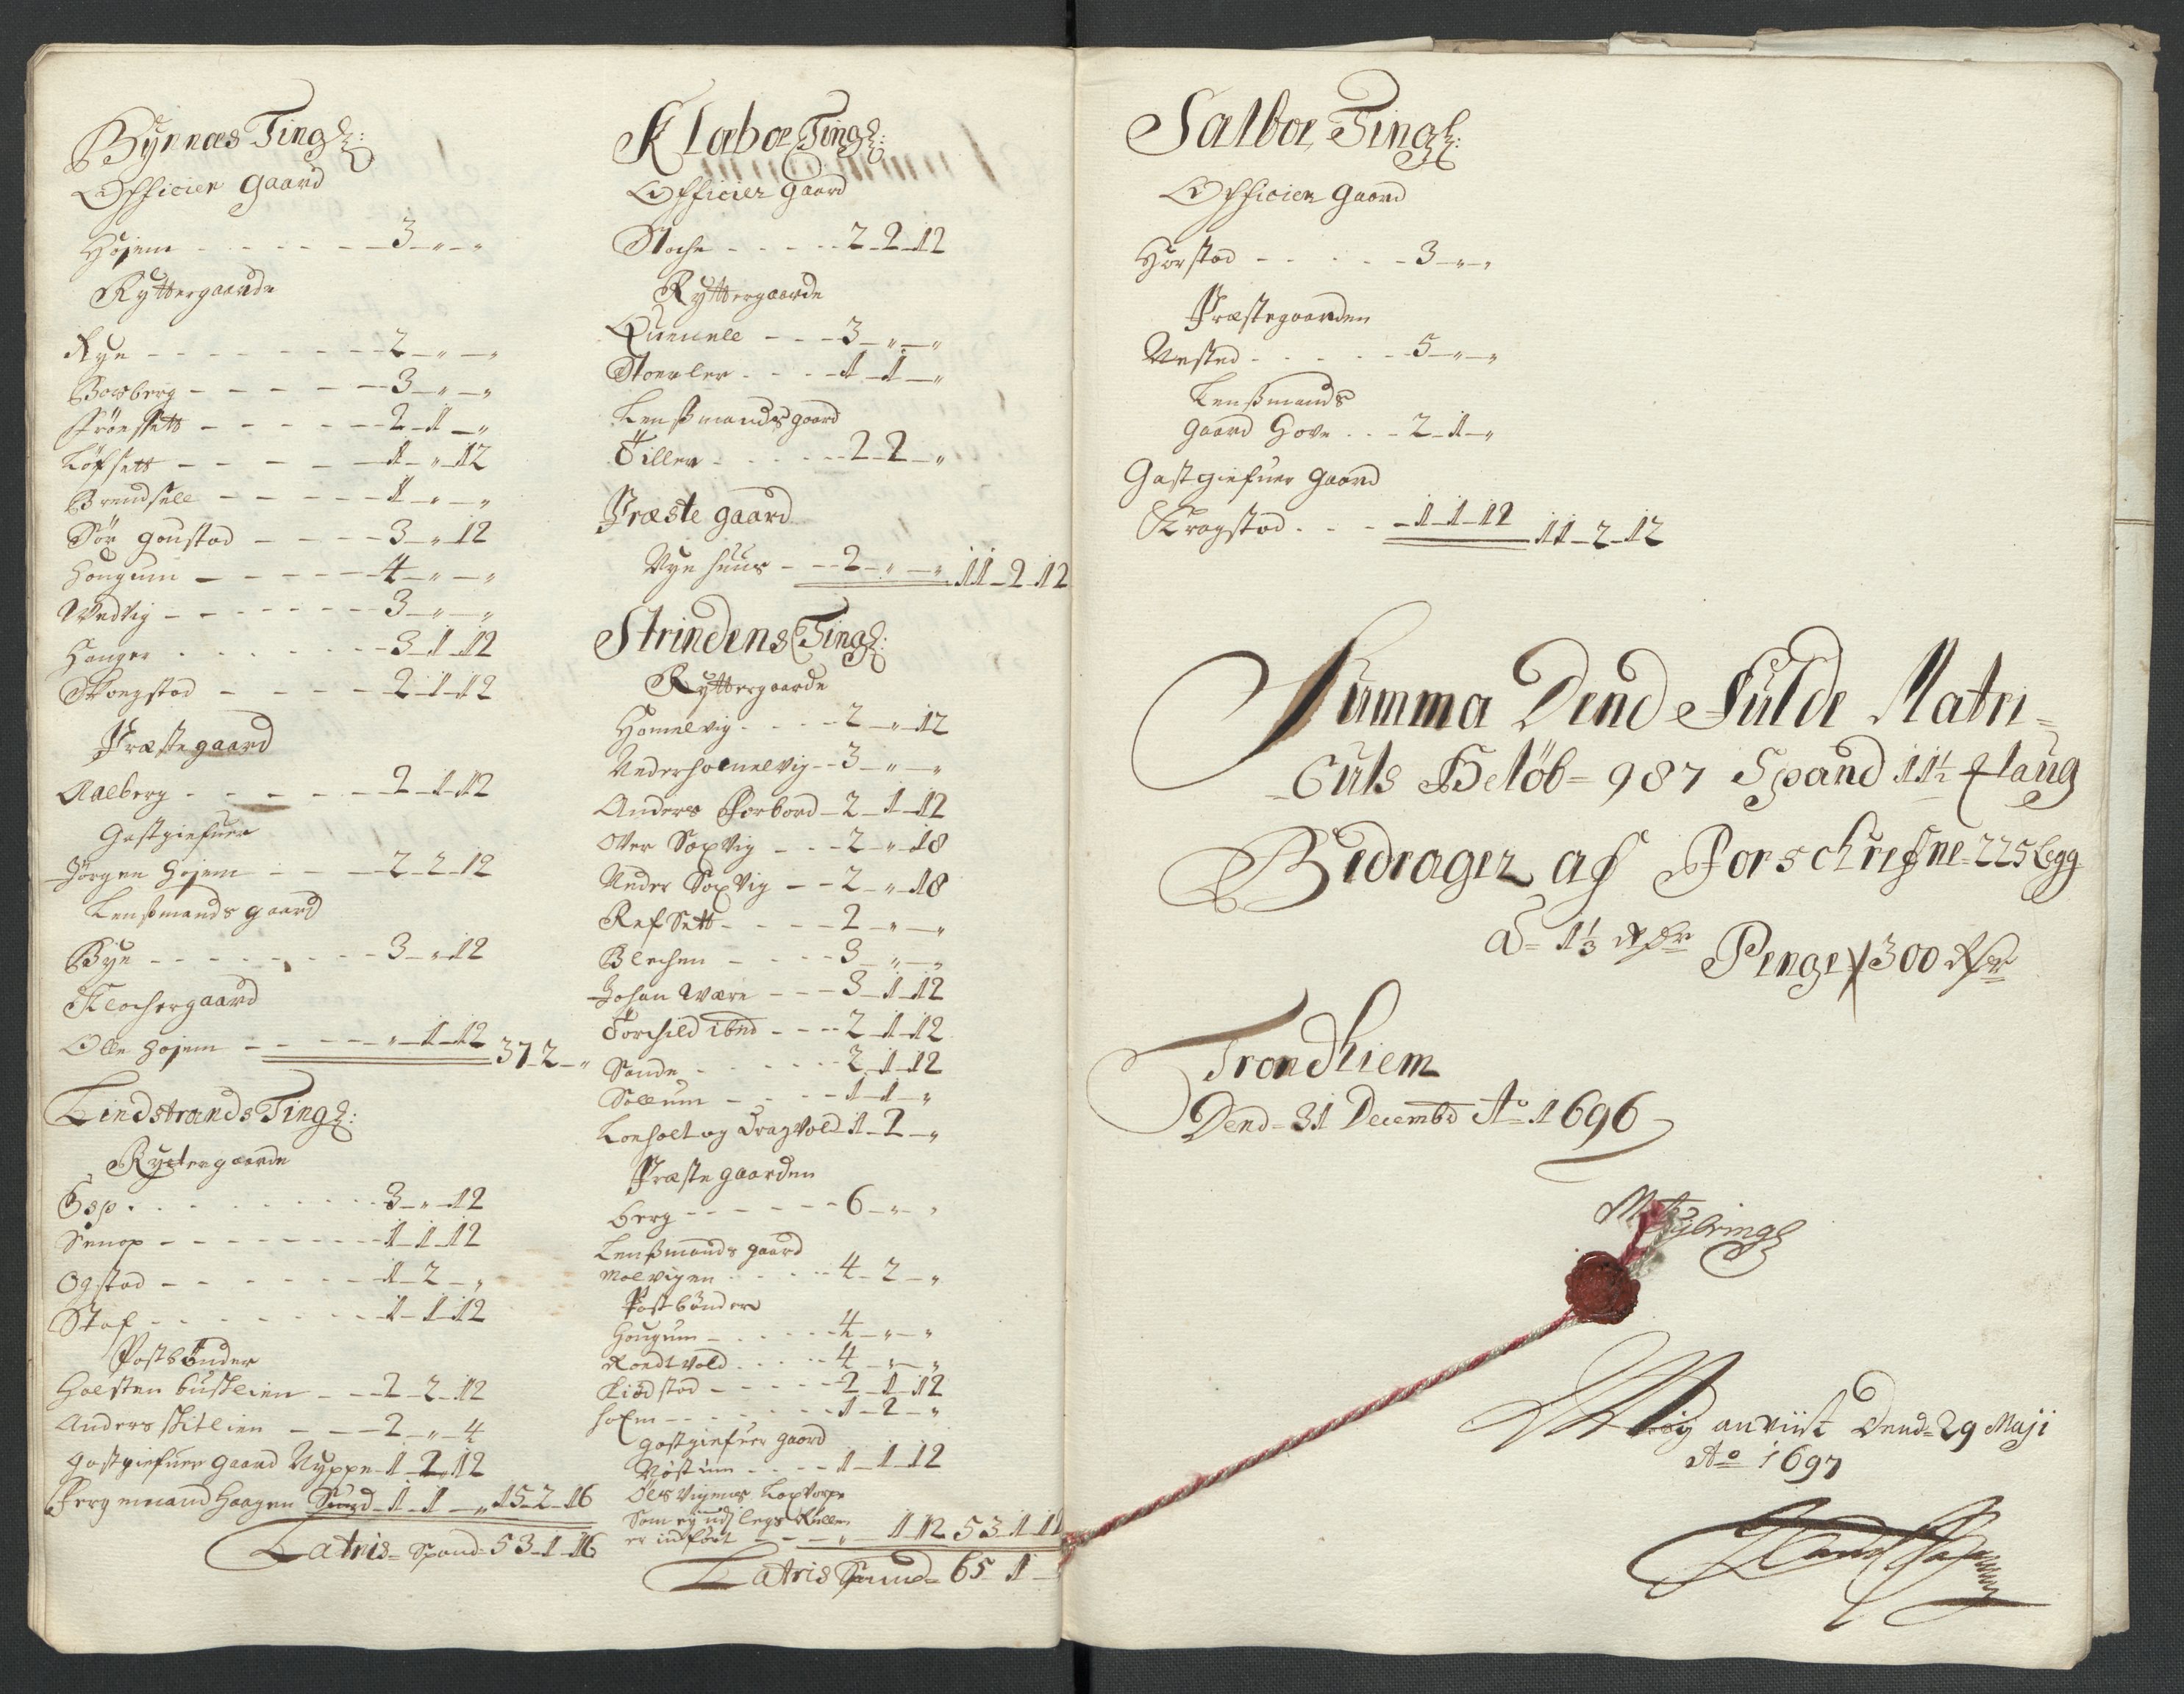 Bynnæs Tingl:
Officier gaard
Højem - - - - - - 3 - „ - „
Ryttergaarde
Rye - - - - - - - 2 - „ - „
Bosberg - - - - - - 3 - „ - „
Fröessett - - - - - 2 - 1 - „
Löfsett - - - - - 1 - „ - 12
Brendsell - - - - - 1 - „ - „
Sör goustad - - - - 3 - „ 12
Hougum - - - - - - 4 - „ - „
Wedvig - - - - - - 3 - „ - „
Hanger - - - - - - 3 - 1 - 12
Skoegstad - - - - - 2 - 1 - 12
Præstegaard
Aalberg - - - - - - 2 - 1 - 12
Gastgiefuer
Jörgen Højem - - - 2 - 2 - 12
Lenßmands gaard
Bye - - - - - - - - 3 - „ 12
Klochergaard
Olle Højem - - - - - „ - 1 - 12 37 - 2 - „
Leindstrands Tingl:
Ryttergaarde
Esp - - - - - - - 3 - „ - 12
Senop - - - - - - - 1 - 1 - 12
Ogstad - - - - - - 1 - 2 - „
Staf - - - - - - - 1 - 1 - 12
Postbönder
Halsten Buslien - - 2 - 2 - 12
Anders Skitlien - - - 2 - „ - 4
gastgiefuer gaard Nyppe - 1 - 2 - 12
Fergemand Haagen Sund - 1 - 1 - „ 15 - 2 - 16
Latris - Spand - 53 - 1 - 16
Klæboe Tingl:
Officier gaard
Stoche - - - - - 2 - 2 - 12
Ryttergaarde
Quenell - - - 3 - „ - „
Stoerler - - - - 1 - 1 - „
Lenßmands gaard
Tiller - - - - - 2 - 2 - „
Præste gaard
Nye huus - - - 2 - „ - „ 11 - 2 - 12
Strindens Tingl:
Ryttergaarde
Homelvig - - - - 2 - „ - 12
Nederhommelvig - - 3 - „ - „
Anders Forbord - 2 - 1 - 12
Ofver Saxvig - - - 2 - „ - 18
Neder Saxvig - - 2 - „ - 18
Refsett - - - - - 2 - „ - „
Blechen - - - - 3 - „ - „
Johan Være - - - 3 - 1 - 12
Torchild ibid - - - - 2 - 1 - 12
Sande - - - - - - 2 - 1 - 12
Sollum - - - - 1 - 1 - „
Loeholt og Dragvold 1 - 2 - „
Præste gaarden
Berg - - - - - - 6 - „ - „
Lenßmands gaard
Malvigen - - - - 4 - 2 - „
Postbönder
Hougum - - - - - 4 - „ - „
Rondtvold - - - - - 4 - „ - „
Kiödstad - - - - - 2 - 1 - 12
holm - - - - - - - 1 - 2 - „
gastgiefuer gaard
Næstum - - - - 1 - 1 - 12
Öls Vigens
Som ey udj legs Rullen
er indfört - - - „ - 1 12 53 - 1 - 12
Latris Spand - 65 - 1 -
Salboe Tingl:
Officier gaard
Harstad - - - - - 3 - „ - „
Præstegaarden
Næsted - - - - - 5 - „ - „
Lenßmands
gaard Hove - - - 2 - 1 - „
Gastgiefuer gaard
Kragstad - - - 1 - 1 - 12 11 - 2 - 12
Summa Dend Fulde Matri=
=culs Belöb = 987 Spand 1 1½ ℔laug
Bedrager af Forschrefne 225 legg
a = 1⅓ Rdr Penge 300 Rdr
Trondhiem
Dend = 31 Decembr Ao 1696
Mig anviist Dend = 29 Maji
Ao 1697